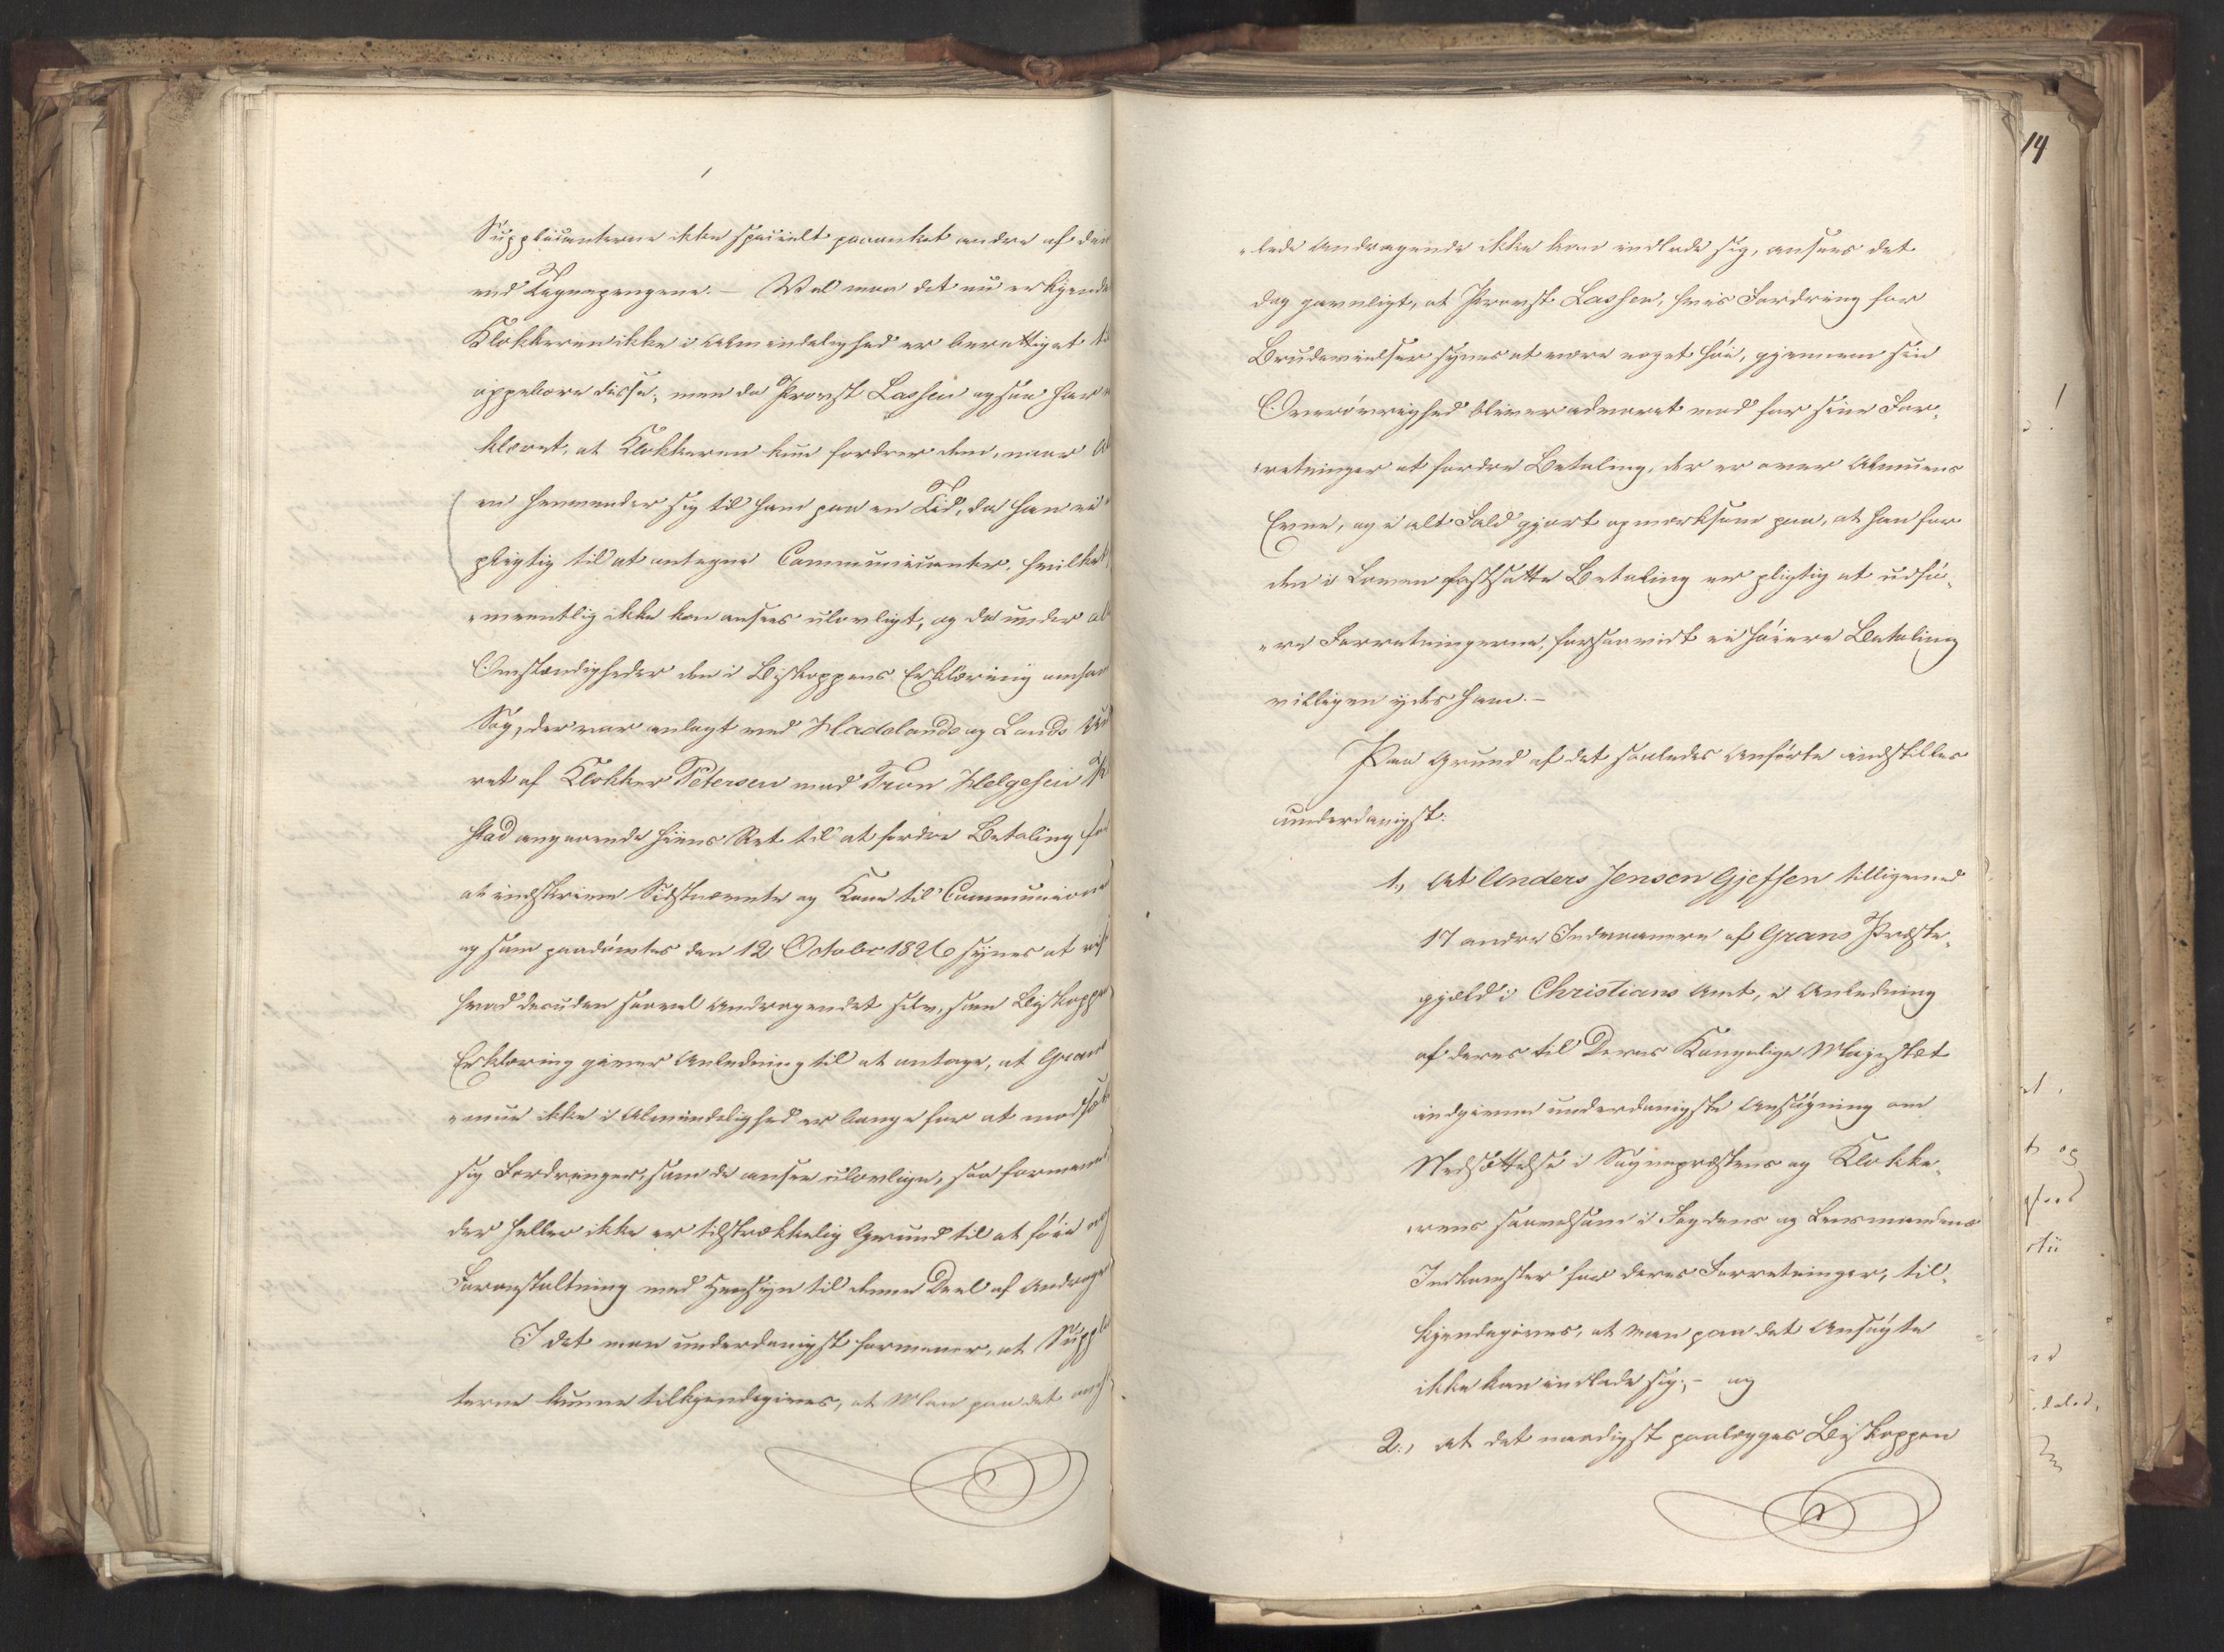 Supplicanterne ikke specielt paaanket andre af den
end Tegnepengene. — Vel maa det nu erkjende
Klokkeren ikke i Almindelighed er berettiget til
oppebære disse; men da Provst Lassen ogsaa har
klæret, at Klokkeren kun fordrer dem, naar
en henvender sig til ham paa en Tid, da han ei
pligtig til at antegne Communicanter, hvilket
mentlig ikke kan ansees ulovligt, og da under al
Omstændigheder den i Biskoppens Erklæring omhan
Sag, der var anlagt ved Hadelands og Lands
ret af Klokker Petersen mod Tron Helgesen
stad angaaende hiins Ret til at fordre Betaling for
at indskrive Sidstnævnte og Kone til Communion
og som paadømtes den 12 Octobr 1826 synes at vise
hvad desuden saavel Andragendet selv, som Biskoppe
Erklæring giver Anledning til at antage, at Grans
muen ikke i Almindelighed er bange for at modsætte
sig Fordringer, som de ansee ulovlige, saa formenes
der heller ikke er tilstrækkelig Grund til at føie
Foranstaltning med Hensyn til denne Deel af Andrage
I det man underdanigst formener, at Suppli
terne kunne tilkjendegives, at Man paa det
14
lede Andragende ikke kan indlade sig, ansees det
dog gavnligt, at Provst Lassen, hvis Fordring for
Brudevielser synes at være noget høi, gjennem sin
Overøvrighed bliver advaret mod for sine For-
retninger at fordre Betaling, der er over Almuens
Evne, og i alt Fald gjort opmærksom paa, at han for
den i Loven fastsatte Betaling er pligtig at udfø-
re Forretningerne, forsaavidt ei høiere Betaling
villigen ydes ham. —
Paa Grund af det saaledes Anførte indstilles
underdanigst:
1., At Anders Jensen Gjefsen tilligemed
17 andre Indvaanere af Grans Præste-
gjæld i Christians Amt, i Anledning
af deres til Deres Kongelige Majestæt
indgivne underdanigste Ansøgning om
Nedsættelse i Sognepræstens og Klokke-
rens saavelsom i Fogdens og Lensmandens
Indkomster for deres Forretninger, til-
kjendegives, at man paa det Ansøgte
ikke kan indlade sig; — og
2., at det naadigst paalægges Biskoppen